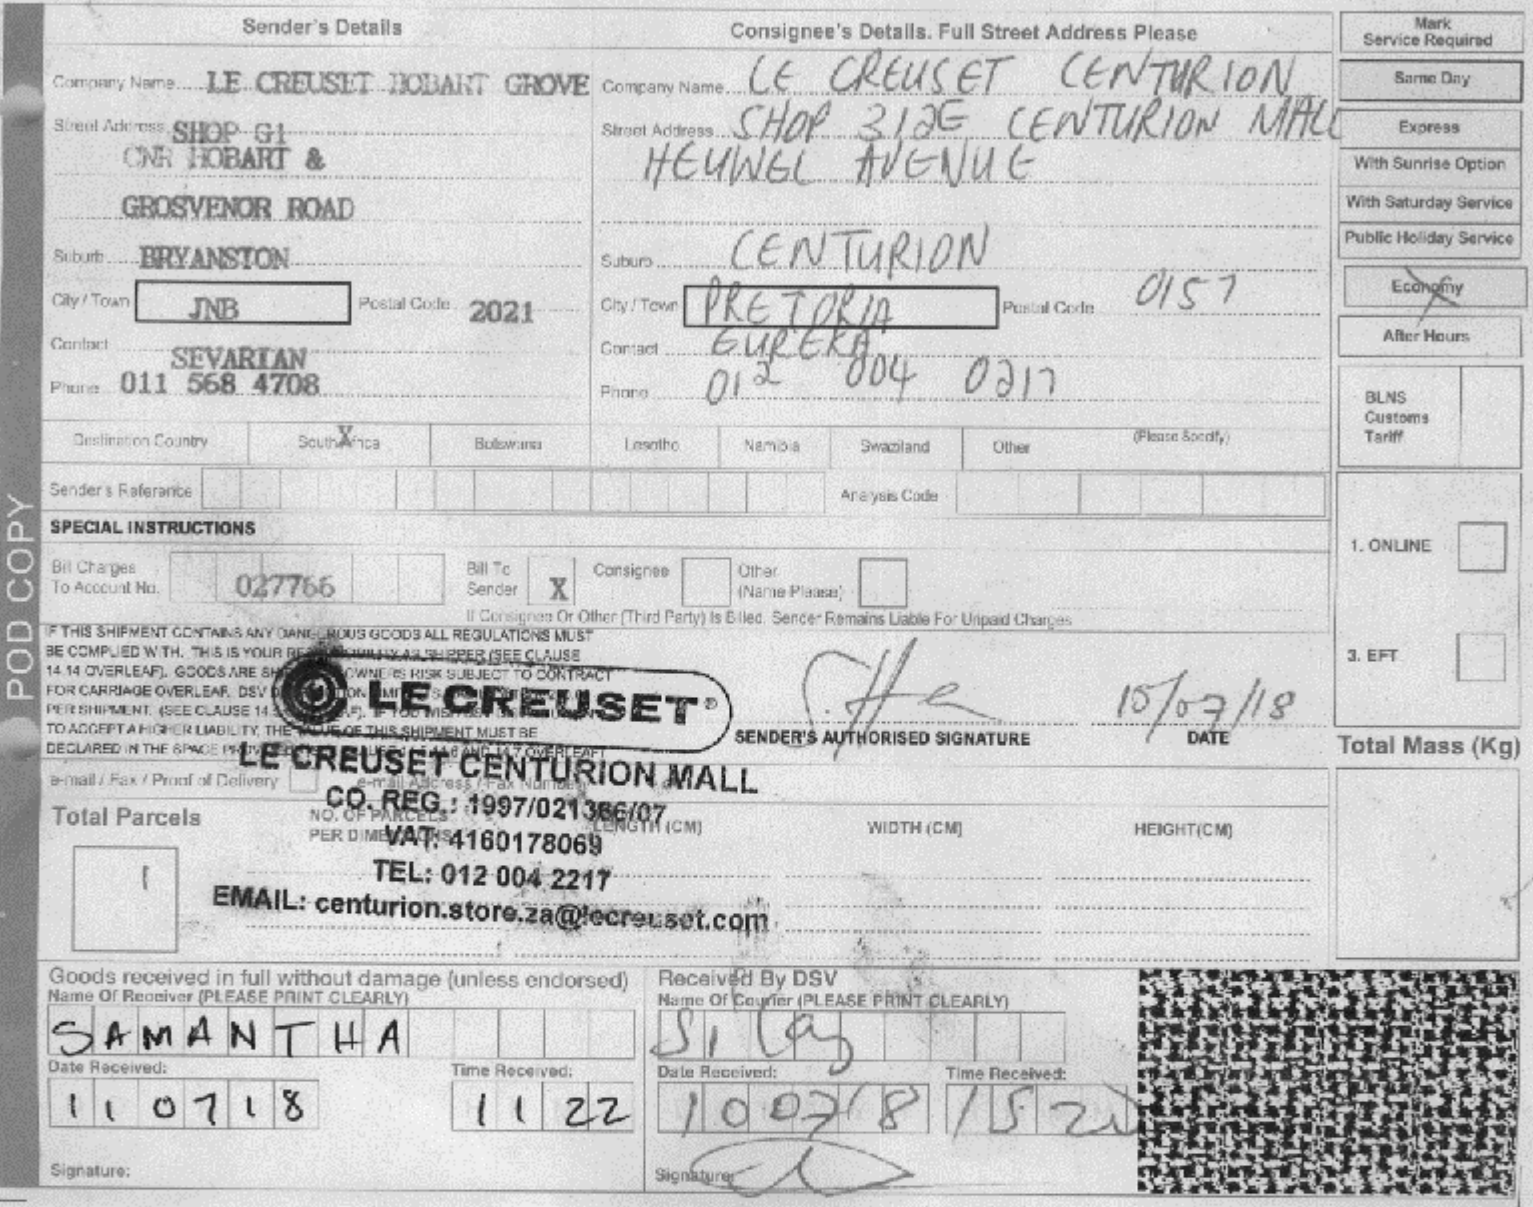 POD COPY
Sender's Details
Company Name LE CREUSET HOBART GROVE
Street Address SHOP G1
CNR HOBART &
GROSVENOR ROAD
Suburb BRYANSTON
City / Town JNB Postal Code 2021
Contact SEVARIAN
Phone 011 568 4708
Consignee's Details. Full Street Address Please
Company Name LE CREUSET CENTURION
Street Address SHOP 312E CENTURION MALL
HEUWEL AVENUE
Suburb CENTURION
City / Town PRETORIA Postal Code 0157
Contact EUREKA
Phone 012 004 0217
Mark
Service Required
Same Day
Express
With Sunrise Option
With Saturday Service
Public Holiday Service
Economy
After Hours
BLNS
Customs
Tariff
Destination Country South Africa X Botswana Lesotho Namibia Swaziland Other (Please Specify)
Sender's Reference Analysis Code
SPECIAL INSTRUCTIONS
Bill Charges
To Account No. 027766
Bill To
Sender X
Consignee
Other
(Name Please)
If Consignee Or Other (Third Party) Is Billed, Sender Remains Liable For Unpaid Charges
1. ONLINE
3. EFT
IF THIS SHIPMENT CONTAINS ANY DANGEROUS GOODS ALL REGULATIONS MUST
BE COMPLIED WITH. THIS IS YOUR AS SHIPPER (SEE CLAUSE
14.14 OVERLEAF). GOODS ARE OWNERS RISK SUBJECT TO CONTRACT
FOR CARRIAGE OVERLEAF. DSV
PER SHIPMENT. (SEE CLAUSE
TO ACCEPT A HIGHER LIABILITY, THE VALUE OF THIS SHIPMENT MUST BE
DECLARED IN THE SPACE AND 14.7 OVERLEAF
LE CREUSET®
LE CREUSET CENTURION MALL
CO. REG.: 1997/021366/07
VAT: 4160178069
TEL: 012 004 2217
EMAIL: centurion.store.za@lecreuset.com
SENDER'S AUTHORISED SIGNATURE
10/07/18
DATE
e-mail / Fax / Proof of Delivery e-mail Address / Fax Number
Total Mass (Kg)
Total Parcels
1
NO. OF PARCELS
PER DIMENSIONS
LENGTH (CM) WIDTH (CM) HEIGHT(CM)
Goods received in full without damage (unless endorsed)
Name Of Receiver (PLEASE PRINT CLEARLY)
SAMANTHA
Date Received: Time Received:
110718 1122
Signature:
Received By DSV
Name Of Courier (PLEASE PRINT CLEARLY)
Date Received: Time Received:
100718
Signature: